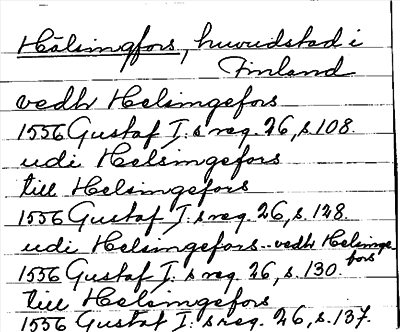 Hälsingfors, huvudstad i
Finland
vedh Helsingefors
1556 Gustaf I:s reg. 26, s. 108.
udi Helsingefors
till Helsingefors
1556 Gustaf I:s reg. 26, s. 128.
udi Helsingefors - vedh Helsinge-
fors
1556 Gustaf I:s reg. 26, s. 130.
till Helsingefors
1556 Gustaf I:s reg. 26, s. 137.